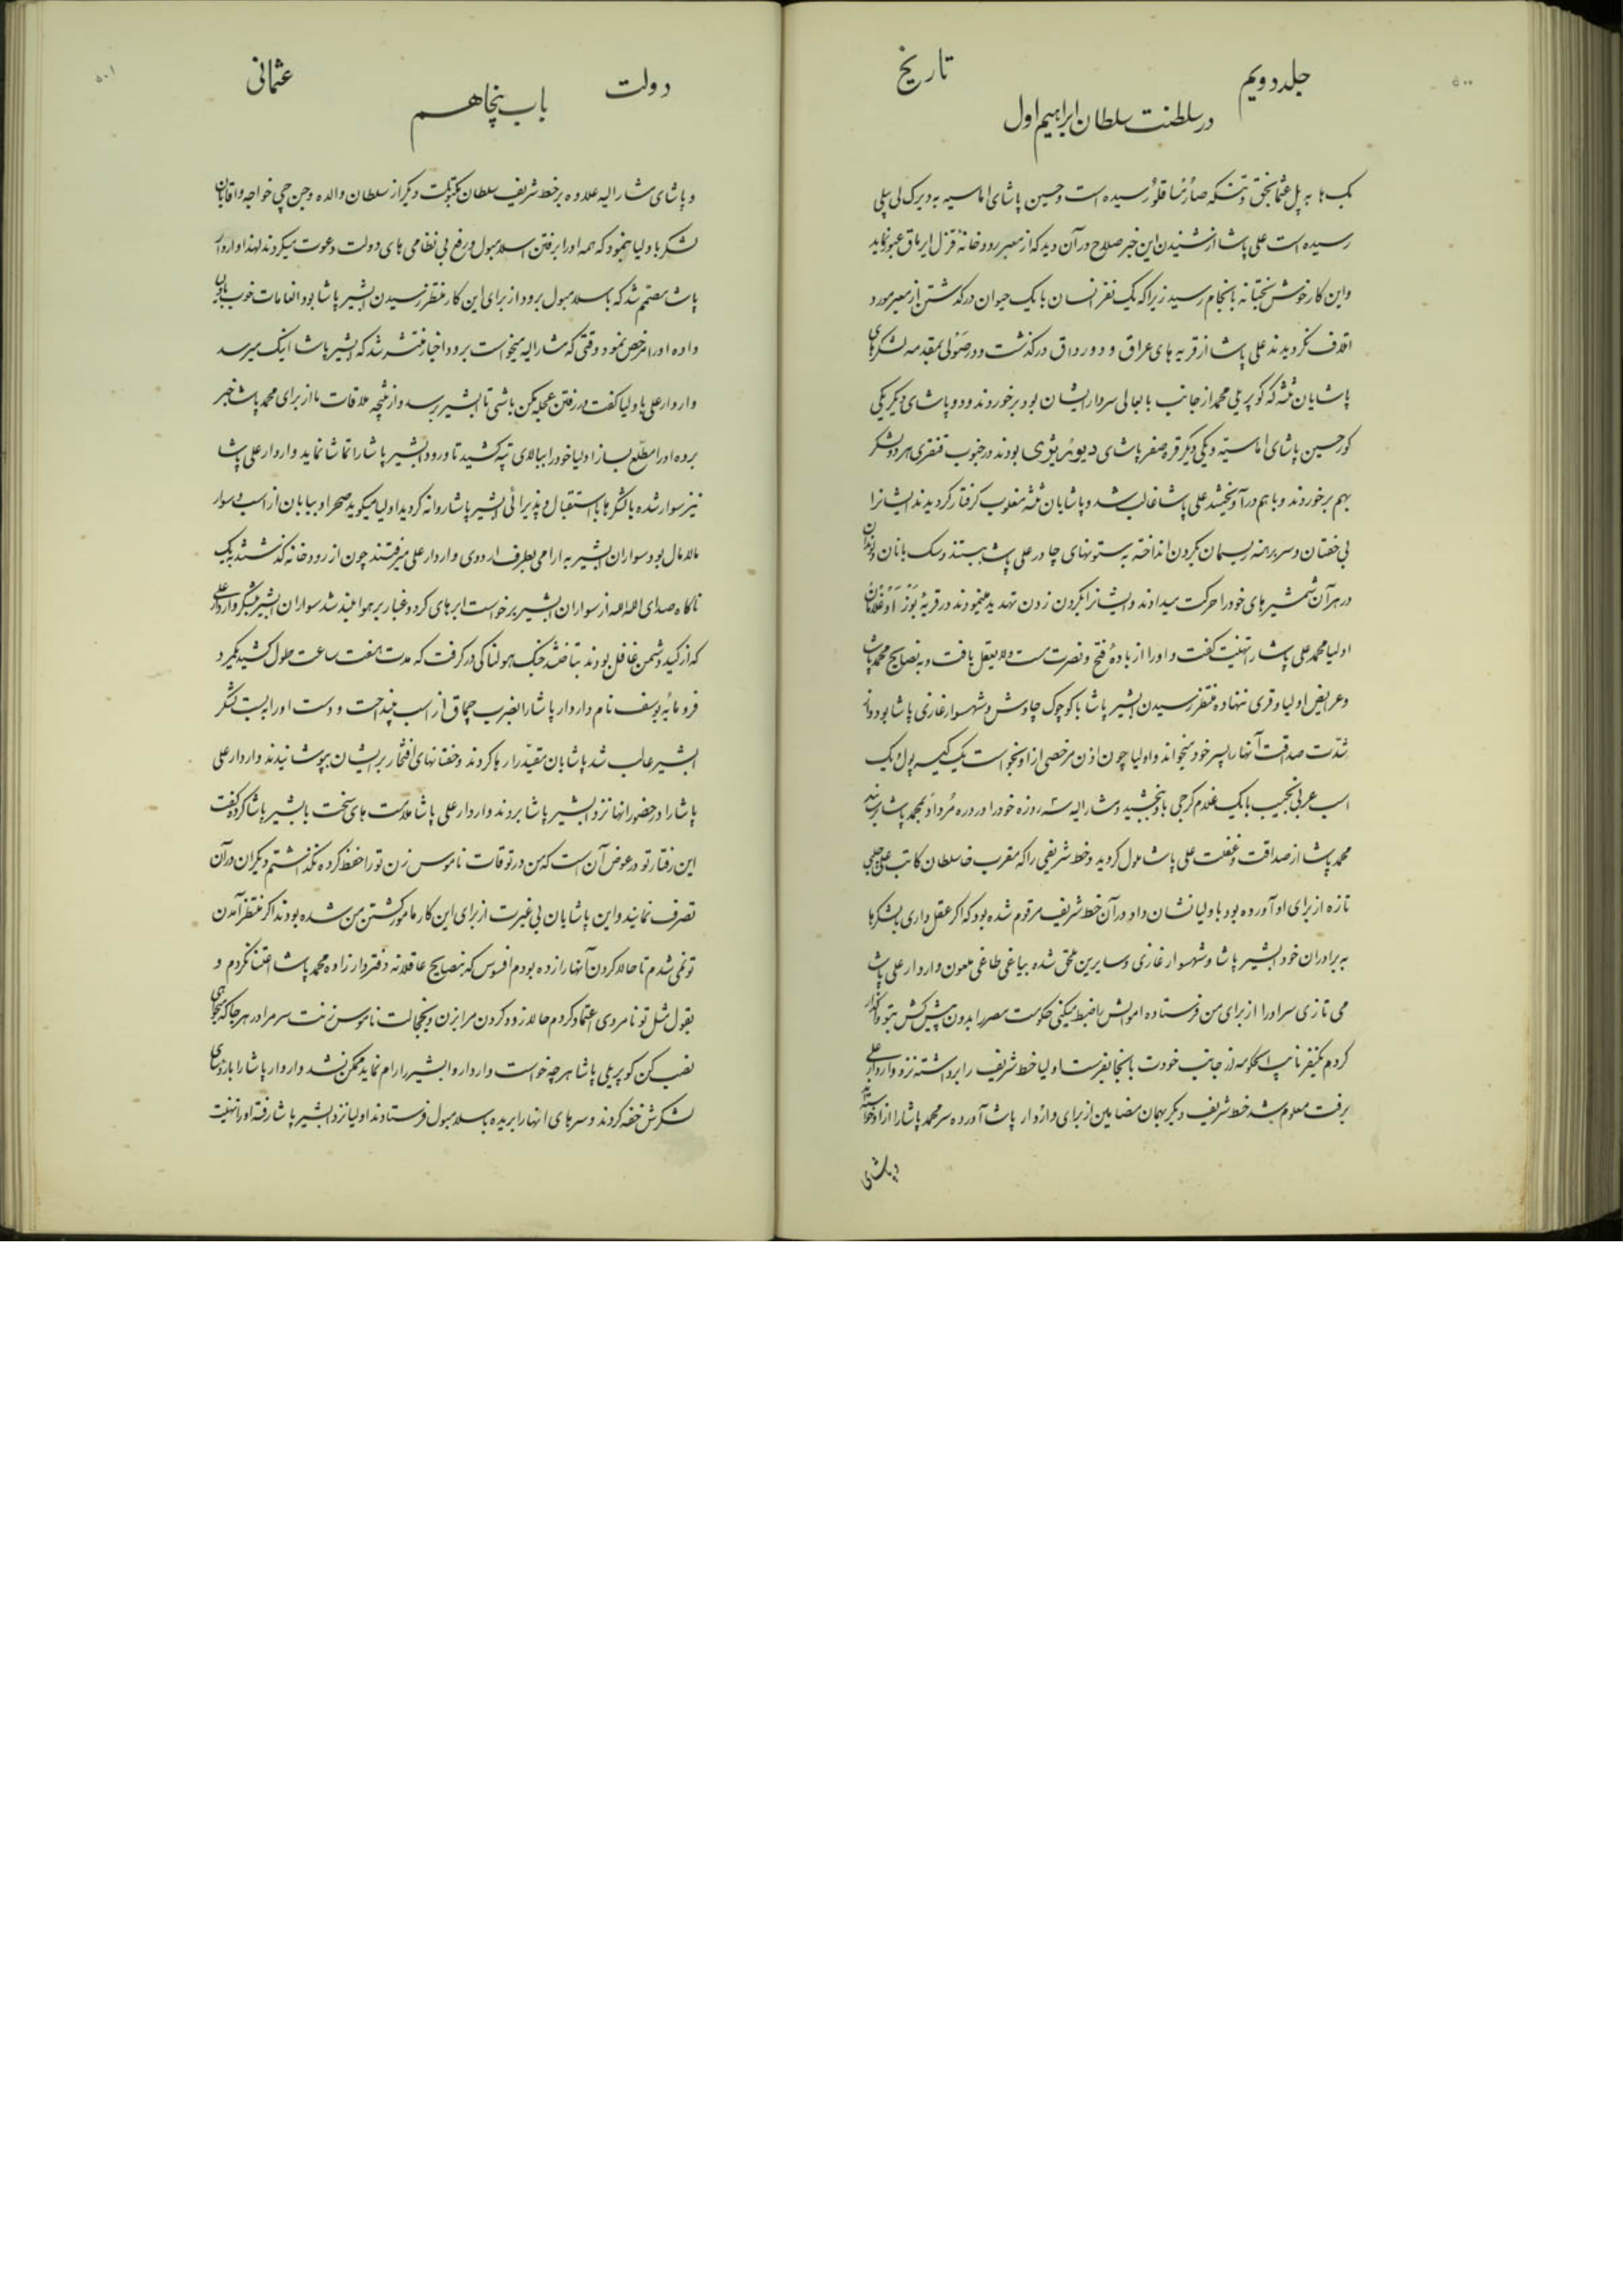 ۵۰۰
جلد دویم
تاریخ
در سلطنت سلطان ابراهیم اول
بک ها به پل عثمانجق و تنکه صارنسا قلو رسیده است و حسین پاشای اماسیه به دیرک لی پلی
رسیده است علی پاشا از شنیدن این خبر صلاح در آن دید که از معبر رودخانهٔ قزل ایرماق عبور نماید
و این کار خوش بختانه بانجام رسید زیرا که یک نفر انسان با یک حیوان در گذشتن از معبر مورد
اتلاف نکردیدند علی پاشا از قریه های عراق و دورداق درگذشت و در صولی بمقدمه لشکرهای
پاشایان ثلثه که کوپریلی محمد از جانب بابعالی سردار ایشان بود برخوردند و دو پاشای دیگر یکی
کور حسین پاشای اماسیه و یکی دیگر قره صفر پاشای بودند در جنوب قنقری هر دو لشکر
بهم برخوردند و باهم درآویختند علی پاشا غالب شد و پاشایان ثلثه مغلوب گرفتار گردیدند ایشانرا
بی خفتان و سر برهنه ریسمان بگردن انداخته به ستونهای چادر علی پاشا بستند و سک بانان
در هر آن شمشیرهای خود را حرکت میدادند و ایشانرا بگردن زدن تهدید مینمودند در قریهٔ
اولیا محمد علی پاشا را تهنیت گفت و او را از بادهٔ فتح و نصرت مست و لایعقل یافت و به نصایح محمد پاشا
و عرایض اولیا وقری ننهاده منتظر رسیدن ابشیر پاشا با کوچوک چاوش و شهسوار غازی پاشا بود و از
شدّت صداقت آنها را پسر خود میخواند و اولیا چون اذن مرخصی از او بخواست یک کیسه پول و یک
اسب عربی نجیب با یک غلام کرجی باو بخشید و مشارالیه سه روزه خود را در دره مرداو بمحمد پاشا رسانید
محمد پاشا از صداقت و غفلت علی پاشا ملول گردید و خط شریفی را که مقرب خا سلطان کاتب علی چلبی
تازه از برای او آورده بود باولیا نشان داد در آن خط شریف مرقوم شده بود که اگر عقل داری با لشکرها
به برادران خود ابشیر پاشا و شهسوار غازی و سایرین ملحق شده بیاغی طاغی ملعون واردار علی پاشا
می تازی سر او را از برای من فرستاده اموالش را ضبط میکنی حکومت مصر را بدون پیش کش بتو واگذار
کردم یکنفر نایب الحکومه از جانب خودت بانجا بفرست اولیا خط شریف را برداشته نزد واردار علی
برفت معلوم شد خط شریف دیگر بهمان مضامین از برای واردار پاشا آورده سر محمد پاشا را از او خواسته
و پاشای
۵۰۱
دولت
عثمانی
باب پنجاهم
و پاشای مشارالیه علاوه بر خط شریف سلطان مکتوبات دیگر از سلطان والده و جن جی خواجه و اقایان
لشکر باولیا بنمود که همه او را برفتن اسلامبول و رفع بی نظامی های دولت دعوت میکردند لهذا واردار
پاشا مصمّم شد که باسلامبول برود از برای این کار منتظر رسیدن ابشیر پاشا بود انعامات خوب باولیا
داده او را مرخص نمود وقتی که مشارالیه میخواست برود اخبار منتشر شد که ابشیر پاشا اینک میرسد
واردار علی باولیا گفت در رفتن عجله مکن باشی تا ابشیر برسد و از نتیجه ملاقات ما از برای محمد پاشا خبر
برده او را مطّلع ساز اولیا خود را ببالای تپه کشید تا ورود ابشیر پاشا را تماشا نماید واردار علی پاشا
نیز سوار شده با لشکرها باستقبال و پذیرائی ابشیر پاشا روانه گردید اولیا میگوید صحرا و بیابان از اسب و سوار
مالامال بود سواران ابشیر به ارامی بطرف اردوی واردار علی میرفتند چون از رودخانه گذشتند بیک
ناکاه صدای الله الله از سواران ابشیر برخواست ابرهای گرد و غبار بر هوا بلند شد سواران ابشیر بلشکر واردار علی
که از کید دشمن غافل بودند بتاختند جنک هولناکی درگرفت که مدت هفت ساعت طول کشید یکمرد
فرومایه یوسف نام واردار پاشا را بضرب چماق از اسب بینداخت و دست او را به بست لشکر
ابشیر غالب شد پاشایان مقیّد را رها کردند و خفتانهای افتخار بر ایشان بپوشانیدند واردار علی
پاشا را در حضور انها نزد ابشیر پاشا بردند واردار علی پاشا ملامت های سخت بابشیر پاشا کرد و گفت
این رفتار تو در عوض آن است که من در توقات ناموس زن تو را حفظ کرده نگذاشتم دیگران در آن
تصرف نمایند و این پاشایان بی غیرت از برای این کار مامور کشتن من شده بودند اگر منتظر آمدن
تو نمی شدم تا حالا گردن آنها را زده بودم افسوس که بنصایح عاقلانه دفتردار زاده محمد پاشا اعتنا نکردم و
بقول مثل تو نامردی اعتماد کردم حالا زود گردن مرا بزن و بخجالت ناموس زنت سر مرا در هر جا که میخواهی
نصب کن کوپریلی پاشا هر چه خواست واردار و ابشیر را رام نماید ممکن نشد واردار پاشا را با رؤسای
لشکرش خفه کردند و سرهای انها را بریده باسلامبول فرستادند اولیا نزد ابشیر پاشا رفته او را تهنیت